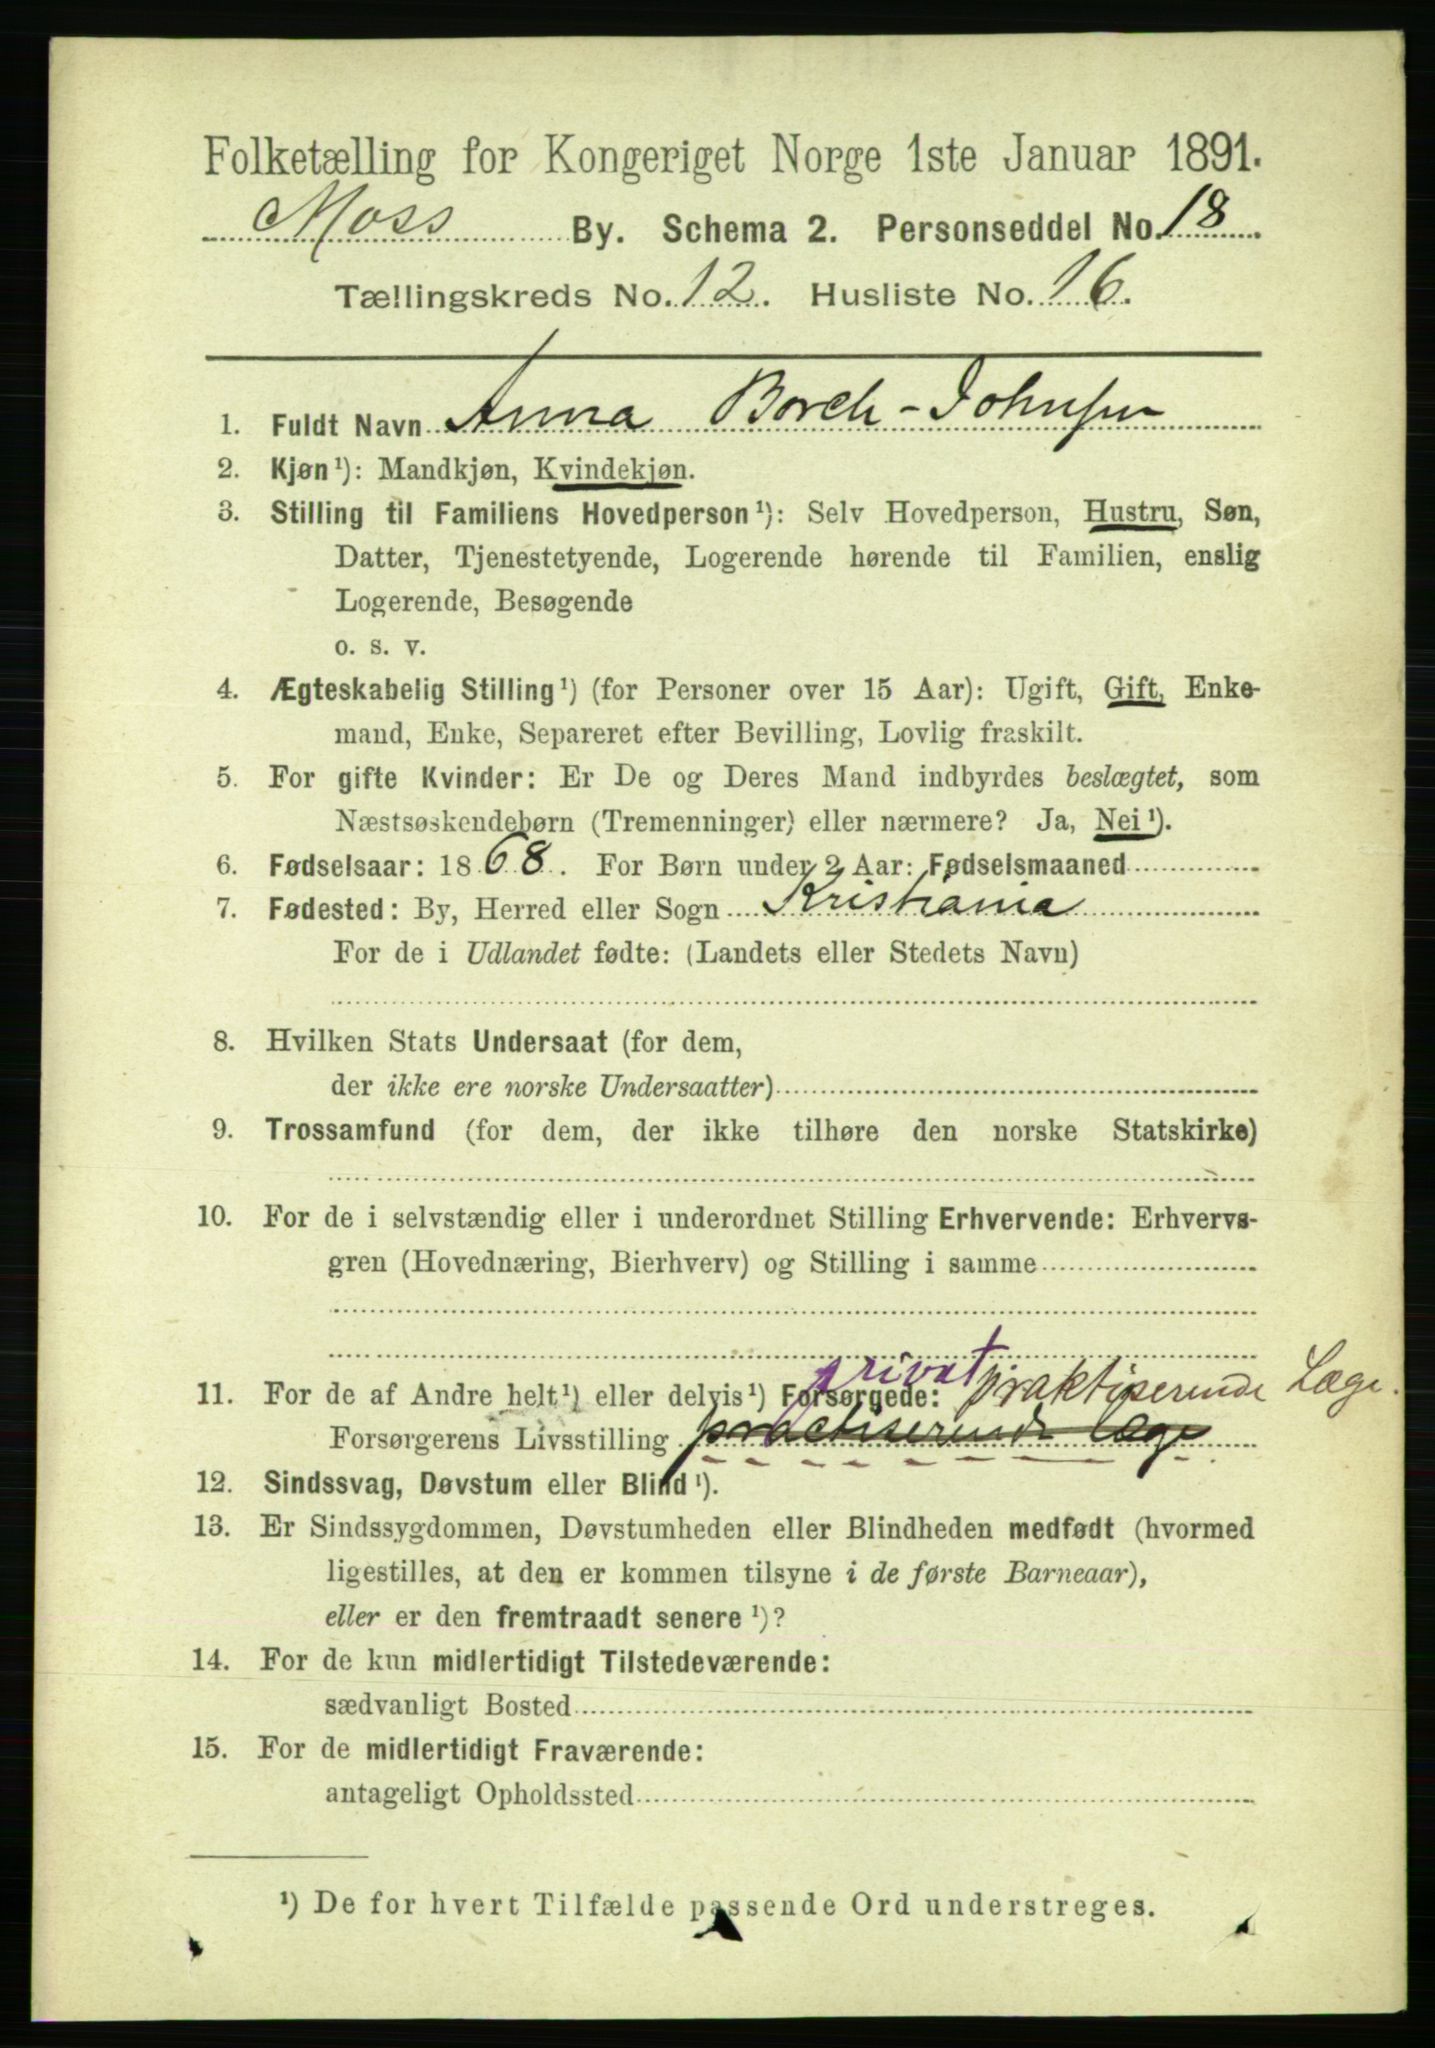 Folketælling for Kongeriget Norge 1ste Januar 1891.
Moss By. Schema 2. Personseddel No. 18
Tællingskreds No. 12. Husliste No. 16.
1. Fuldt Navn Anna Borch-Johnsen
2. Kjøn ¹): Mandkjøn, Kvindekjøn.
3. Stilling til Familiens Hovedperson ¹): Selv Hovedperson, Hustru, Søn,
Datter, Tjenestetyende, Logerende hørende til Familien, enslig
Logerende, Besøgende
o. s. v.
4. Ægteskabelig Stilling ¹) (for Personer over 15 Aar): Ugift, Gift, Enke-
mand, Enke, Separeret efter Bevilling, Lovlig fraskilt.
5. For gifte Kvinder: Er De og Deres Mand indbyrdes beslægtet, som
Næstsøskendebørn (Tremenninger) eller nærmere? Ja, Nei ¹).
6. Fødselsaar: 1868. For Børn under 2 Aar: Fødselsmaaned
7. Fødested: By, Herred eller Sogn Kristiania
For de i Udlandet fødte: (Landets eller Stedets Navn)
8. Hvilken Stats Undersaat (for dem,
der ikke ere norske Undersaatter)
9. Trossamfund (for dem, der ikke tilhøre den norske Statskirke)
10. For de i selvstændig eller i underordnet Stilling Erhvervende: Erhvervs-
gren (Hovednæring, Bierhverv) og Stilling i samme
privat
11. For de af Andre helt ¹) eller delvis ¹) Forsørgede: praktiserende Læge.
Forsørgerens Livsstilling practiserende Læge
12. Sindssvag, Døvstum eller Blind ¹).
13. Er Sindssygdommen, Døvstumheden eller Blindheden medfødt (hvormed
ligestilles, at den er kommen tilsyne i de første Barneaar),
eller er den fremtraadt senere ¹)?
14. For de kun midlertidigt Tilstedeværende:
sædvanligt Bosted
15. For de midlertidigt Fraværende:
antageligt Opholdssted
¹) De for hvert Tilfælde passende Ord understreges.